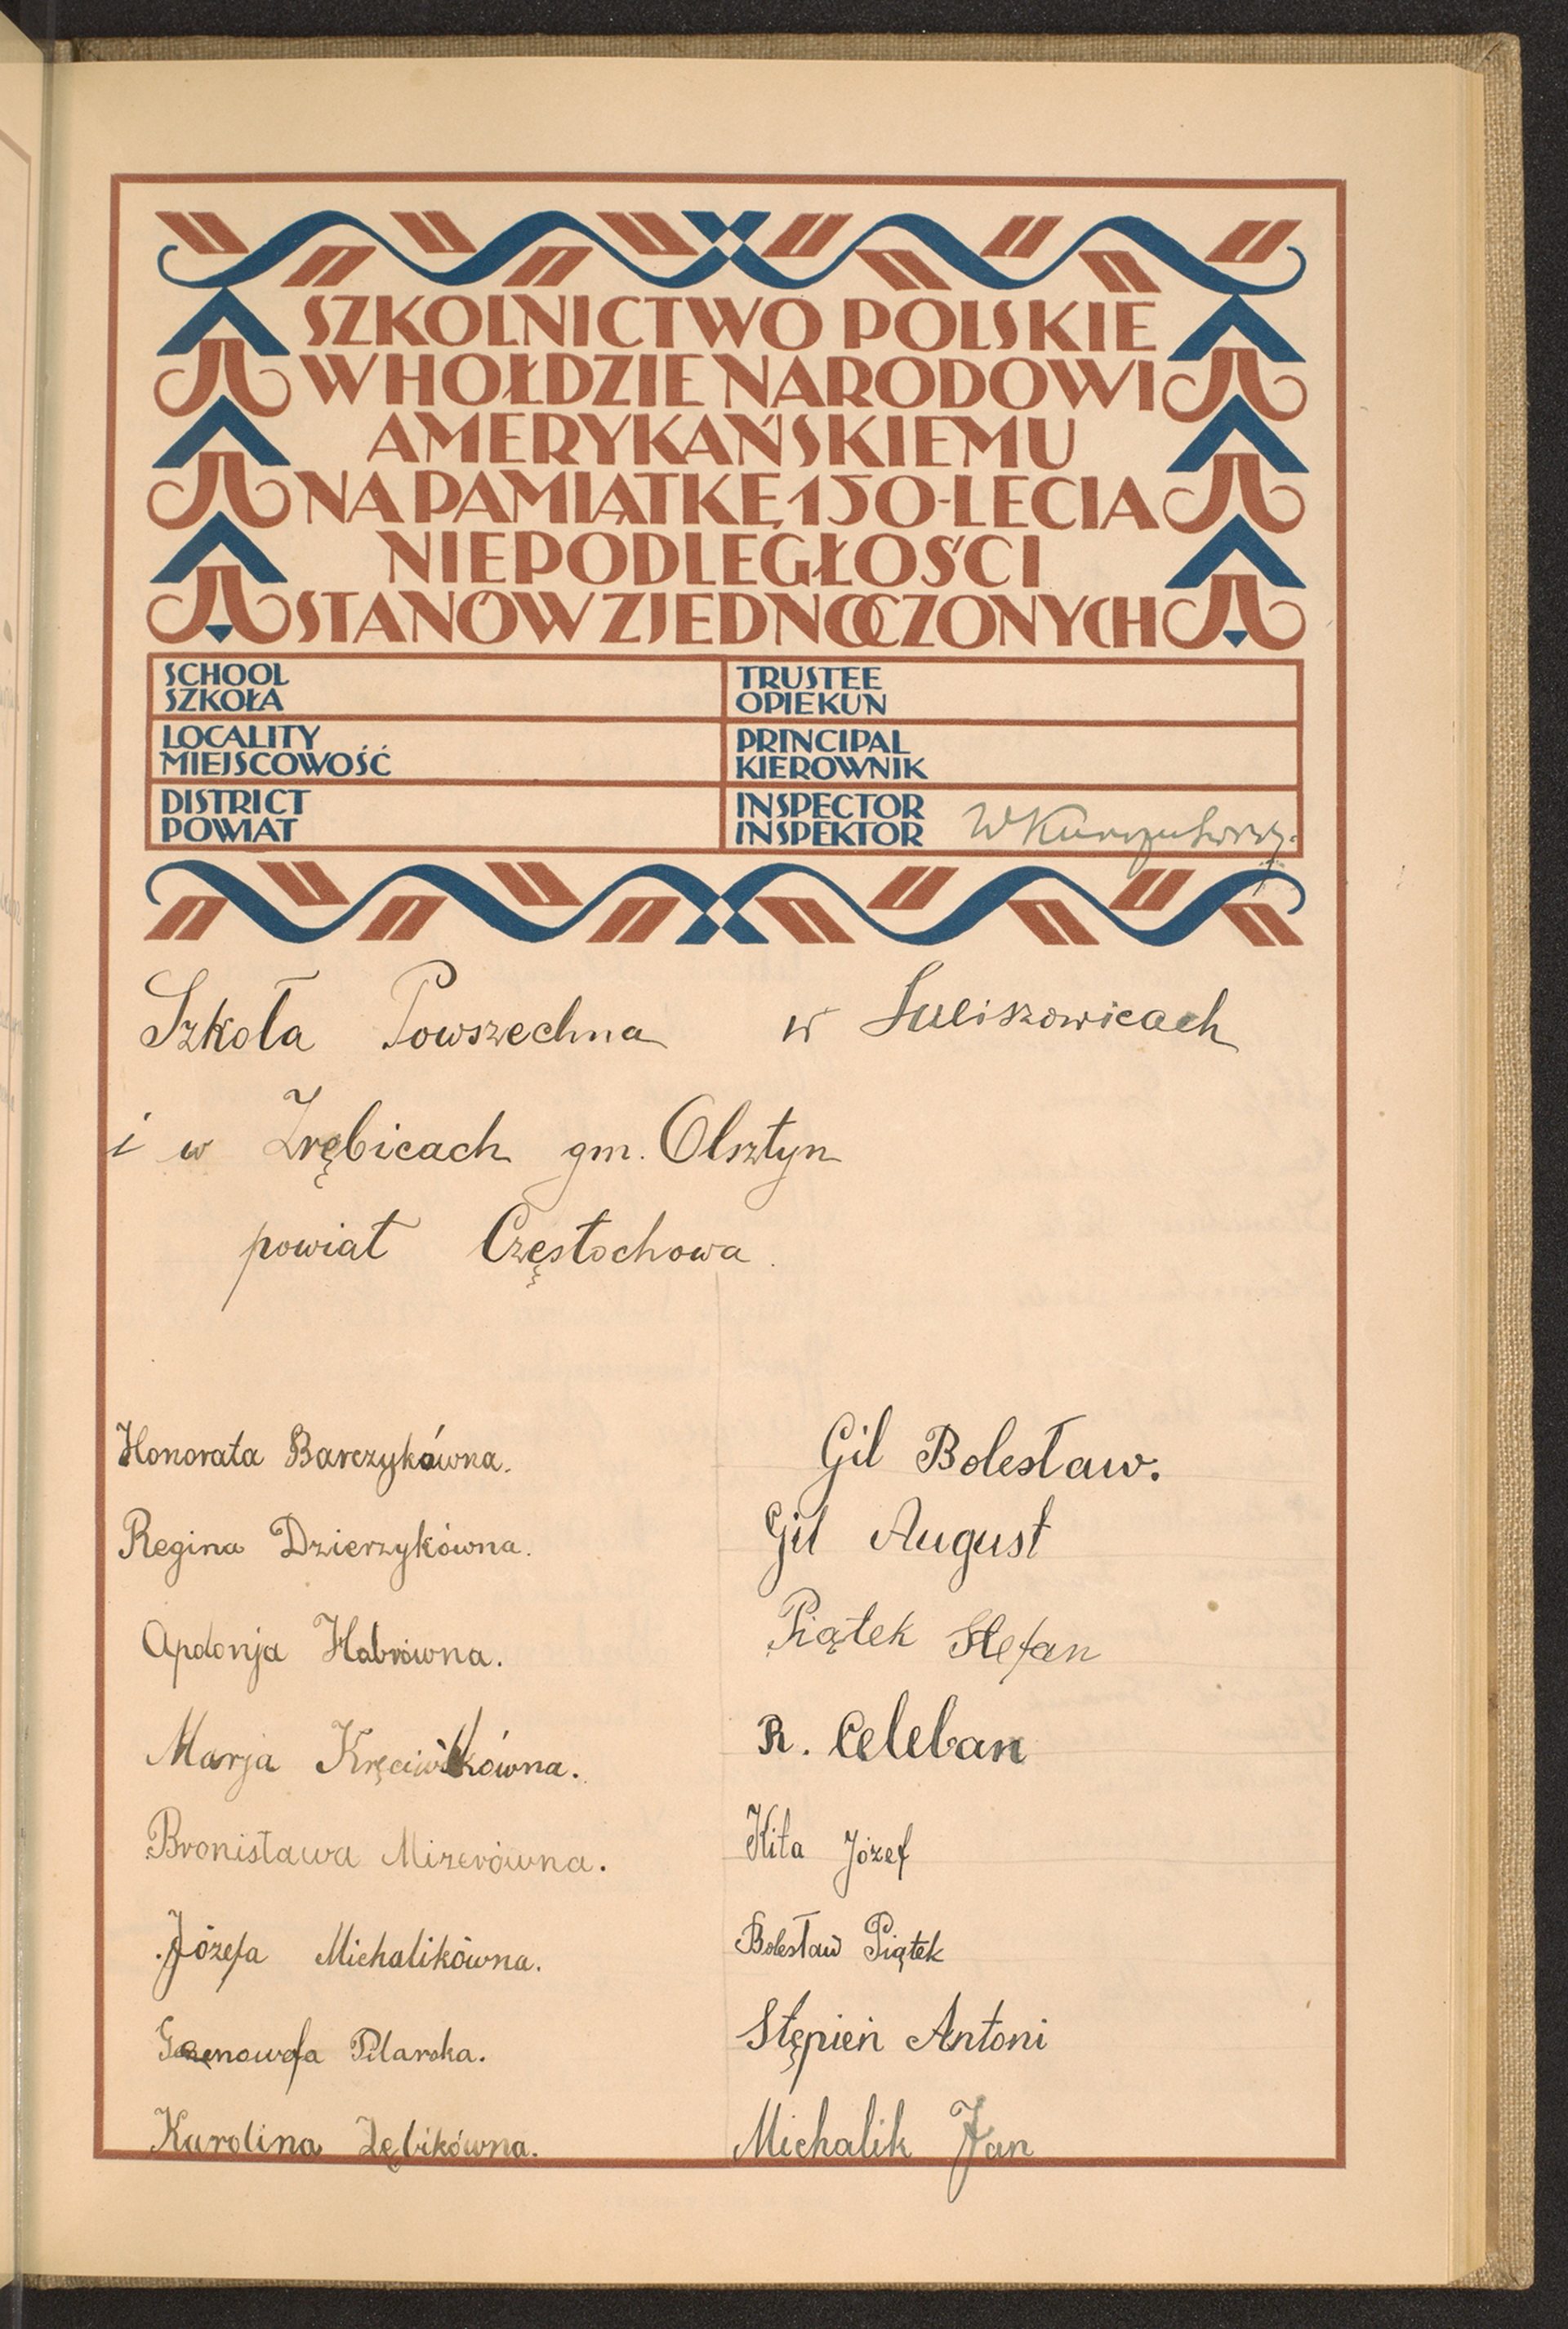 SZKOLNICTWO POLSKIE
W HOŁDZIE NARODOWI
AMERYKAŃSKIEMU
NA PAMIĄTKĘ 150-LECIA
NIEPODLEGŁOŚCI
STANÓW ZJEDNOCZONYCH
SCHOOL
SZKOŁA
TRUSTEE
OPIEKUN
LOCALITY
MIEJSCOWOŚĆ
PRINCIPAL
KIEROWNIK
DISTRICT
POWIAT
INSPECTOR
INSPEKTOR
Szkoła Powszechna w Suliszowicach
i w Zrębicach gm. Olsztyn
powiat Częstochowa
Honorata Barczykówna.
Regina Dzierzykówna.
Apolonja Habrówna.
Marja
Bronisława Mizerówna.
Józefa Michalikówna.
Pilarska.
Karolina Zębikówna.
Gil Bolesław.
Gil August
Piątek Stefan
R. Celeban
Kita Józef
Bolesław Piątek
Stępień Antoni
Michalik Jan